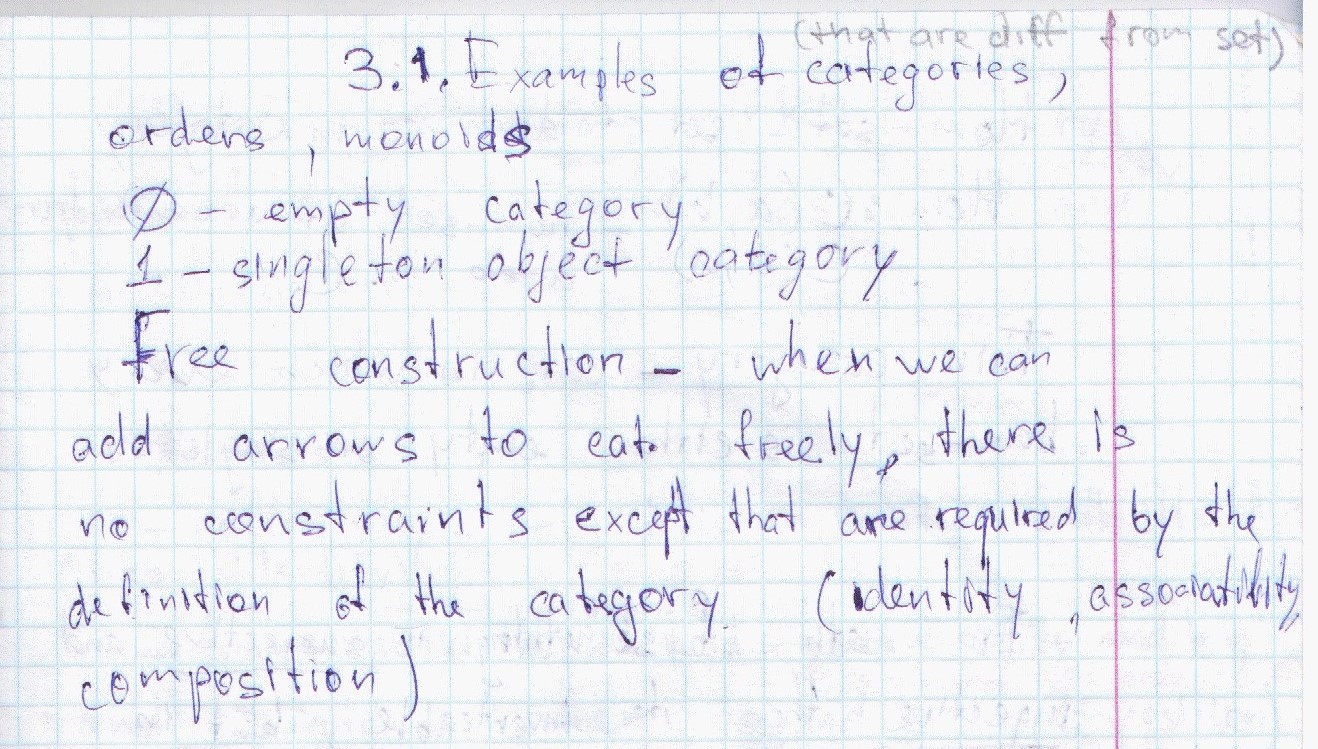 (that are diff from set)
3.1. Examples of categories,
orders, monoids
∅ - empty category
1 - singleton object category
Free construction - when we can
add arrows to cat. freely, there is
no constraints except that are required by the
definition of the category. (identity, associativity,
composition)